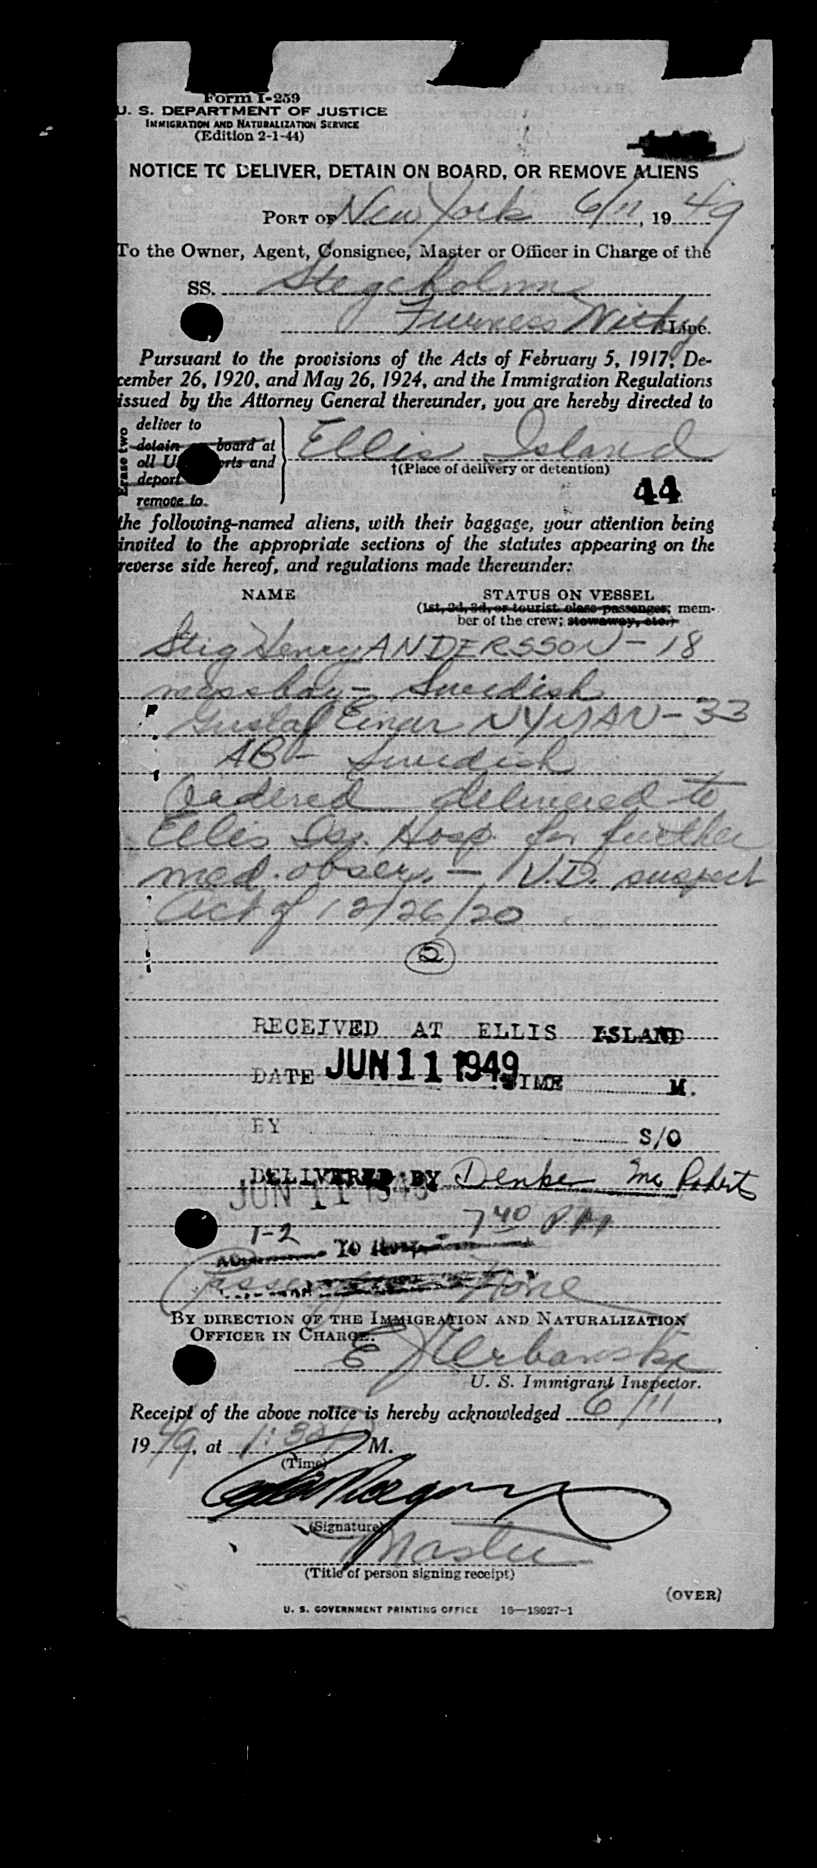 Form I-259
U. S. DEPARTMENT OF JUSTICE
IMMIGRATION AND NATURALIZATION SERVICE
(Edition 2-1-44)
NOTICE TO DELIVER, DETAIN ON BOARD, OR REMOVE ALIENS
PORT OF New York 6/11, 1949
To the Owner, Agent, Consignee, Master or Officer in Charge of the
SS. Stegeholm
Furness Withy Line.
Pursuant to the provisions of the Acts of February 5, 1917, De-
cember 26, 1920, and May 26, 1924, and the Immigration Regulations
issued by the Attorney General thereunder, you are hereby directed to
Erase two
deliver to
detain on board at
all U. ports and
deport
remove to
Ellis Island
†(Place of delivery or detention)
44
the following-named aliens, with their baggage, your attention being
invited to the appropriate sections of the statutes appearing on the
reverse side hereof, and regulations made thereunder:
NAME STATUS ON VESSEL
(1st, 2d, 3d, or tourist class passenger; mem-
ber of the crew; stowaway, etc.)
Stig Henry ANDERSSON - 18
messboy - Swedish
Gustaf Einar NYMAN - 33
AB - Swedish
Ordered delivered to
Ellis Isl. Hosp for further
med. obser. - V.D. suspect
Act of 12/26/20
2
RECEIVED AT ELLIS ISLAND
DATE JUN 11 1949 TIME M.
BY S/O
DELIVERED BY Denker Mc Roberts
JUN 11 1949
7 40 PM
T-2
To Hosp
None
BY DIRECTION OF THE IMMIGRATION AND NATURALIZATION
OFFICER IN CHARGE.
E J Urbanski
U. S. Immigrant Inspector.
Receipt of the above notice is hereby acknowledged 6/11,
1949, at 1:30 P M.
(Time)
(Signature)
Master
(Title of person signing receipt)
(OVER)
U. S. GOVERNMENT PRINTING OFFICE 16—18027-1